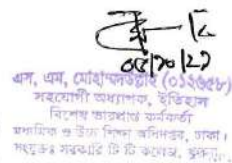 ০৫/১০/২১
এস, এম, মোহাম্মদউল্লাহ (০১২৬৫৮)
সহযোগী অধ্যাপক, ইতিহাস
বিশেষ ভারপ্রাপ্ত কর্মকর্তা
মাধ্যমিক ও উচ্চ শিক্ষা অধিদপ্তর, ঢাকা।
সংযুক্তঃ সরকারি টি টি কলেজ,